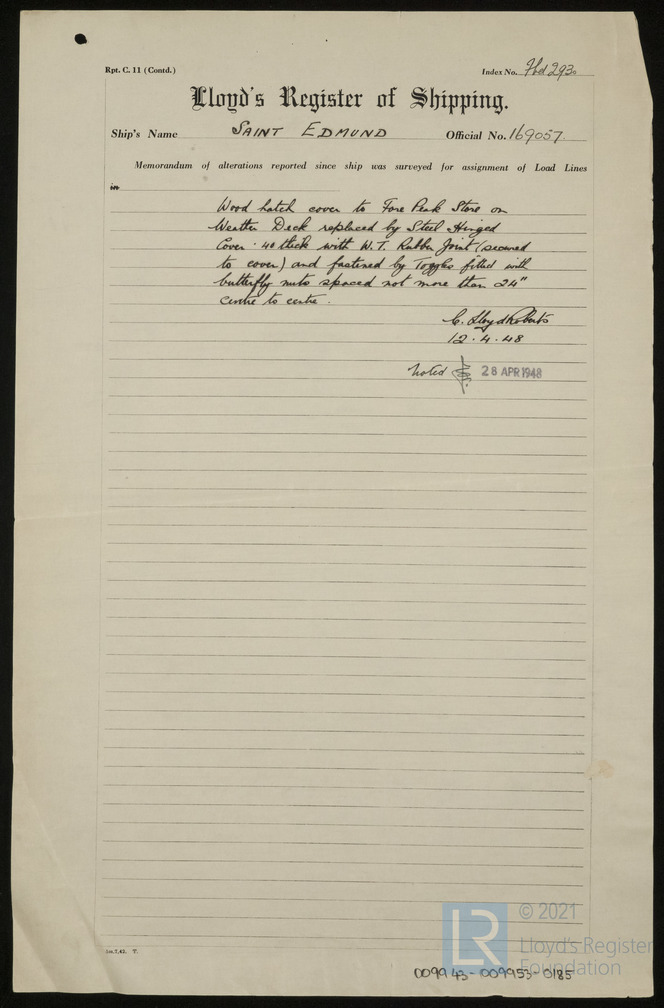 Rpt. C. 11 (Contd.)
Index No.
Lloyd's Register of Shipping.
Ship's Name SAINT EDMUND Official No. 169057.
Memorandum of alterations reported since ship was surveyed for assignment of Load Lines
in
Wood hatch cover to Fore Peak Store on
Weather Deck replaced by Steel Hinged
Cover .40 thick with W.T. Rubber Joint (secured
to cover) and fastened by Toggles fitted with
butterfly nuts spaced not more than 24"
centre to centre.
C. Lloyd Roberts
12.4.48
Noted 28 APR 1948
© 2021
LR
Lloyd's Register
Foundation
009943-009953-0185